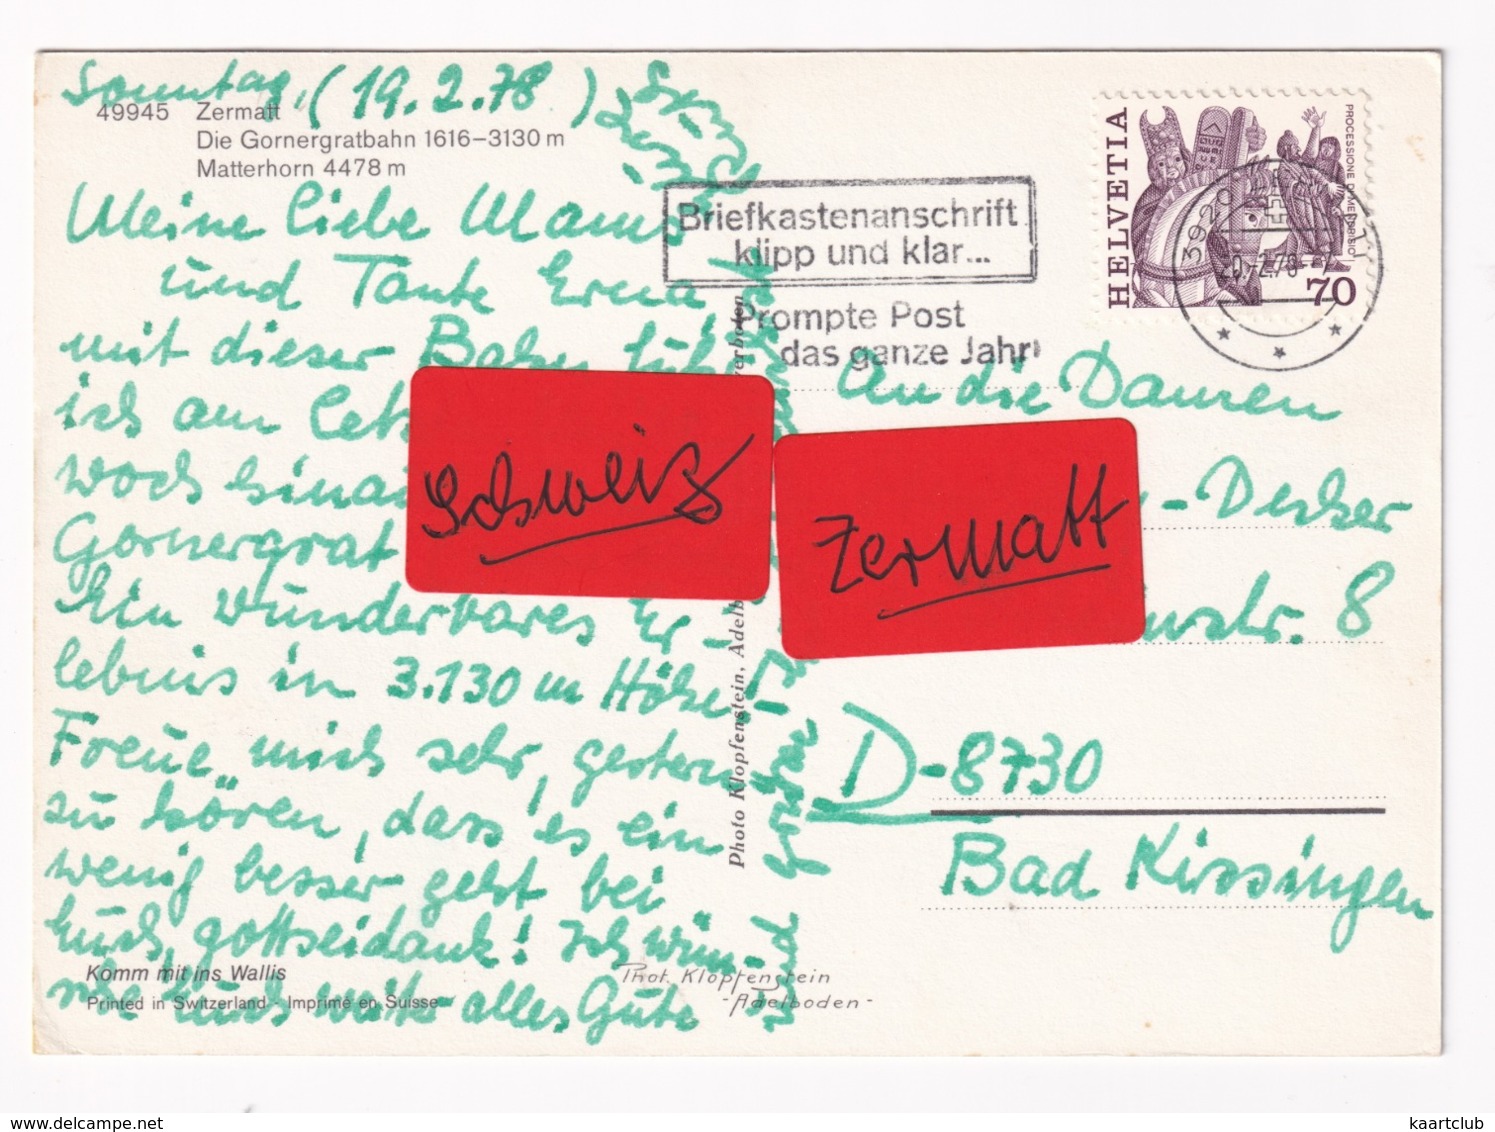 Sonntag, (19.2.78)
49945 Zermatt
Die Gornergratbahn 1616–3130 m
Matterhorn 4478 m
Meine liebe Mamis
und Tante Erna
mit dieser Bahn
ich am
woch
Gornergrat
Ein wunderbares Er-
lebnis in 3.130 m Höhe.
Freue mich sehr, gestern
zu hören, dass es ein
wenig besser geht bei
Euch, gottseidank! Ich wün-
sche Euch weiter alles Gute
Komm mit ins Wallis
Printed in Switzerland - Imprimé en Suisse
Phot. Klopfenstein
- Adelboden -
Photo Klopfenstein, Adelb
verboten
Schweiz
Zermatt
Briefkastenanschrift
klipp und klar...
Prompte Post
das ganze Jahr
HELVETIA
PROCESSIONE DI MENDRISIO
70
3920
20.-2.78
An die Damen
-Decker
str. 8
D-8730
Bad Kissingen
delcampe.net
kaartclub